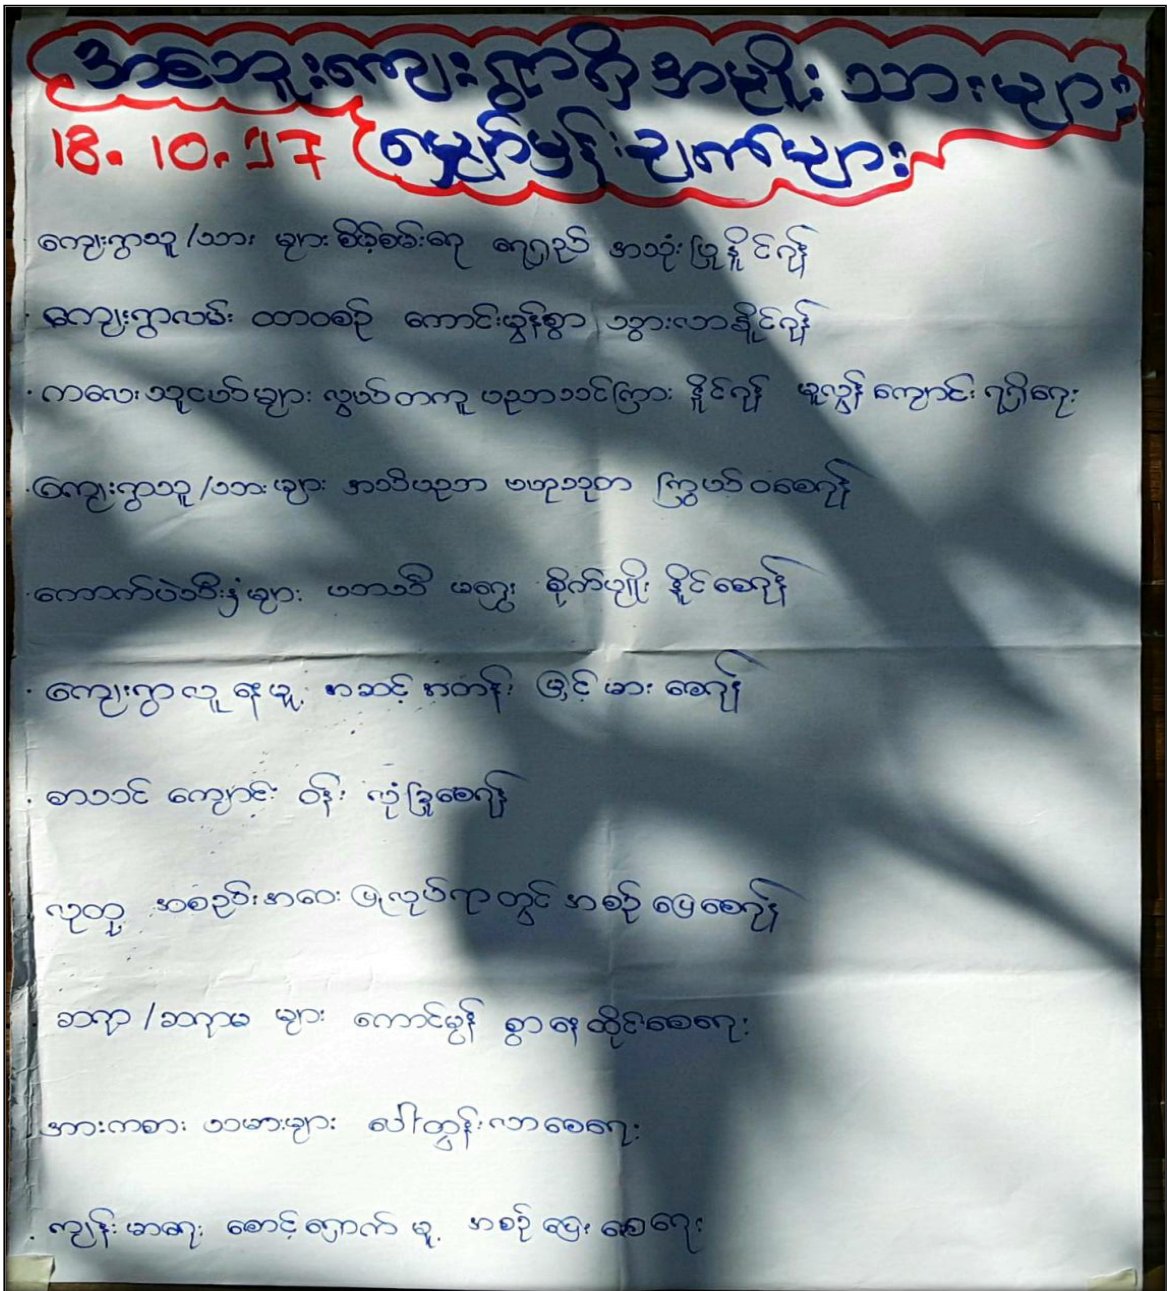 အစောဘူးကျေးရွာရှိ အမျိုးသားများ
18.10.17 မျှော်မှန်းချက်များ
ကျေးရွာသူ/သား များ စိမ့်စမ်းရေ ရေရှည် အသုံးပြုနိုင်ဂျန်
ကျေးရွာလမ်း ထာဝစဉ် ကောင်းမွန်စွာ သွားလာနိုင်ဂျန်
· ကလေးသူငယ်များ လွယ်တကူ ပညာသင်ကြား နိုင်ဂျန် မူလွန် ကျောင်း ရရှိရေး
· ကျေးရွာသူ/သားများ အသိပညာ ဗဟုသုတ ကြွယ်ဝစေဂျန်
· ကောက်ပဲသီးနှံများ ရာသီ မရွေး စိုက်ပျိုး နိုင်စေဂျန်
· ကျေးရွာလူနေမှု့ အဆင့်အတန်း မြှင့်မားစေဂျန်
· စာသင် ကျောင်း ဝန်း လုံခြုံစေဂျန်
လုထု အစည်းအဝေး ပြုလုပ်ရာတွင် အစဉ်ပြေစေဂျန်
ဆရာ/ဆရာမ များ ကောင်မွန် စွာနေထိုင်စေရေး
အားကစား သမားများ ပေါ်ထွန်းလာစေရေး
· ကျန်းမာရေး စောင့်ရှောက်မှု့ အစဉ်ပြေးစေရေး